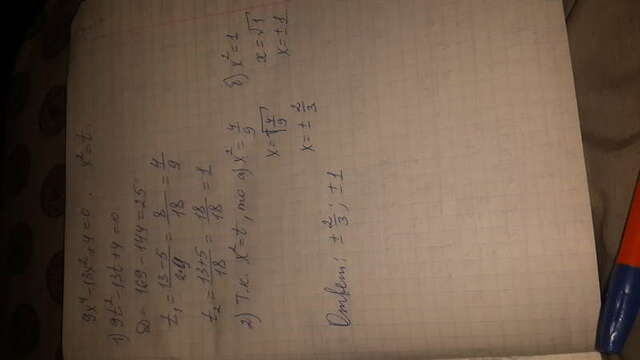 9x⁴-13x²+4=0. x²=t.
1) 9t²-13t+4=0.
D = 169-144=25
t₁ = 13-5/2·9 = 8/18 = 4/9
t₂ = 13+5/18 = 18/18 = 1
2) Т.к. x²=t, то а) x²=4/9 б) x²=1
x=√4/9 x=√1
x=±2/3 x=±1
Ответ: ±2/3; ±1